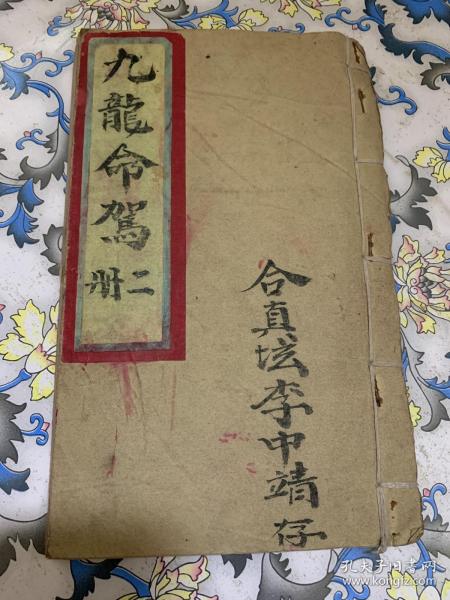 九龍命駕
二册
合真坛李中靖存
孔夫子旧书网
www.kongfz.com